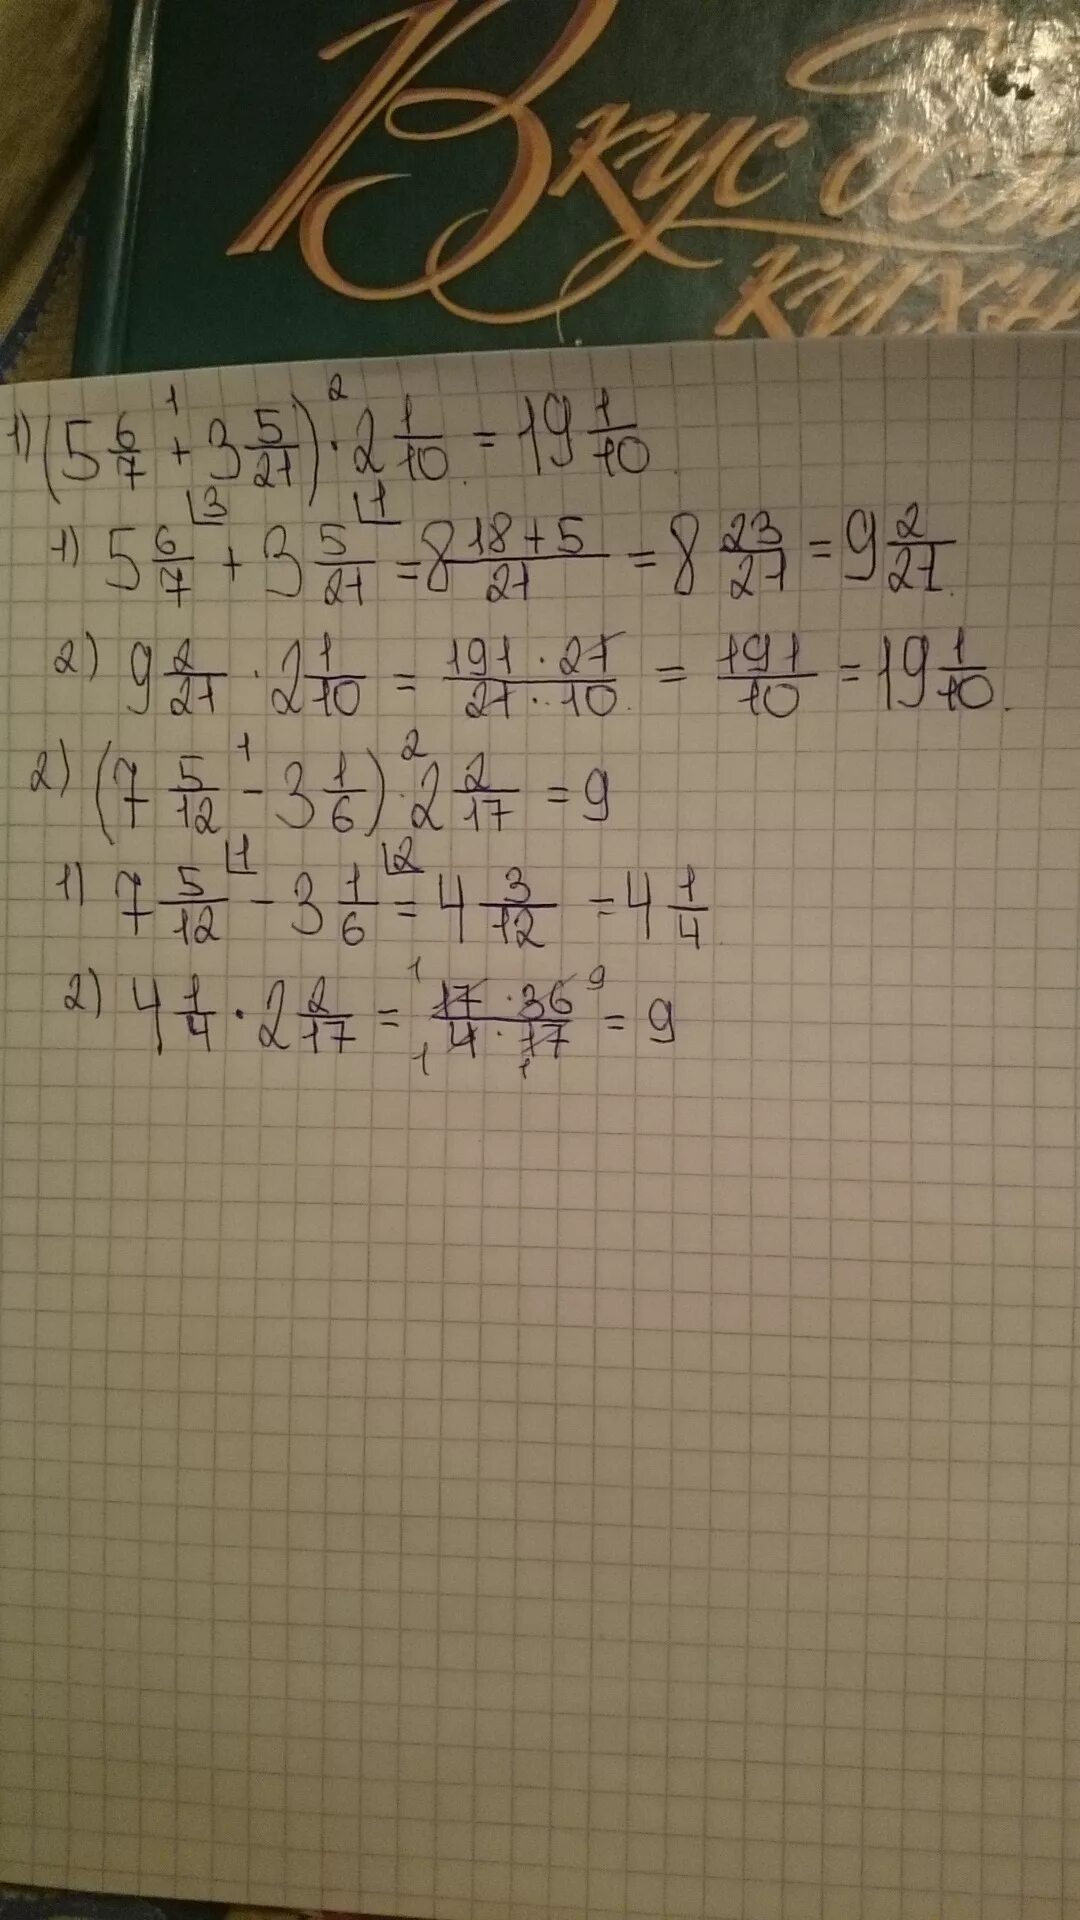 Вкус
кухн
1) (5 6/7 + 3 5/21) · 2 1/10 = 19 1/10
1 2
1) 5 6/7 + 3 5/21 = 8 18+5/21 = 8 23/21 = 9 2/21
3 1
2) 9 2/21 · 2 1/10 = 191·21/21·10 = 191/10 = 19 1/10
2) (7 5/12 - 3 1/6) · 2 2/17 = 9
1 2
1) 7 5/12 - 3 1/6 = 4 3/12 = 4 1/4
1 2
2) 4 1/4 · 2 2/17 = 17·36/4·17 = 9
1 9
1 1